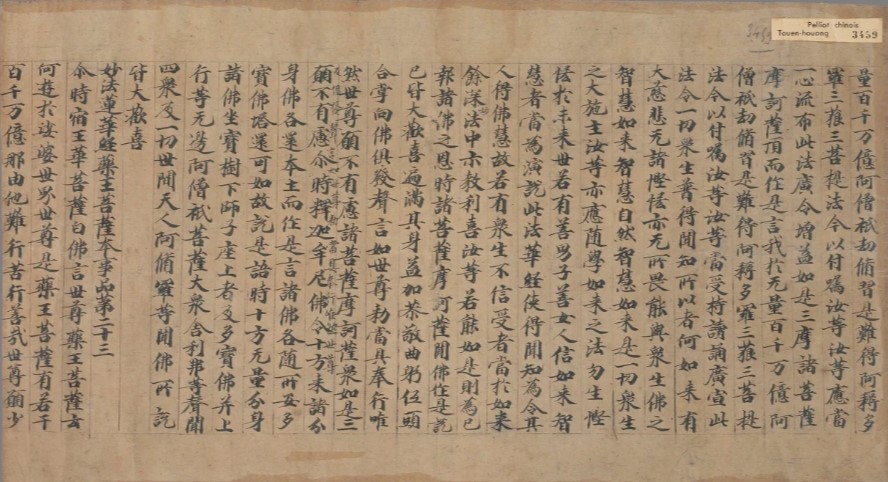 Pelliot chinois
Touen-houang 3459
3459
量百千万億阿僧祇劫脩習是難得阿耨多
羅三藐三菩提法今以付囑汝等汝等應當
一心流布此法廣令增益如是三摩諸菩薩
摩訶薩頂而作是言我於无量百千万億阿
僧祇劫脩習是難得阿耨多羅三藐三菩提
法今以付囑汝等汝等當受持讀誦廣宣此
法令一切衆生普得聞知所以者何如來有
大慈悲无諸慳悋亦无所畏能與衆生佛之
智慧如來智慧自然智慧如來是一切衆生
之大施主汝等亦應随學如來之法勿生慳
悋於未來世若有善男子善女人信如來智
慧者當為演說此法華經使得聞知為令其
人得佛慧故若有衆生不信受者當於如來
餘深法中示教利喜汝等若能如是則為已
報諸佛之恩時諸菩薩摩訶薩聞佛作是說
已皆大歡喜遍滿其身益加恭敬曲躬伍頭
合掌向佛俱發聲言如世尊勑當具奉行唯
然世尊願不有慮諸菩薩摩訶薩衆如是三
願不有慮尒時釋迦牟尼佛令十方来諸分
身佛各還本土而作是言諸佛各随所安多
寶佛塔還可如故說是語時十方无量分身
諸佛坐寶樹下師子座上者及多寶佛并上
行等无邊阿僧祇菩薩大衆舍利弗等聲聞
四衆及一切世間天人阿脩羅等聞佛所說
皆大歡喜
妙法蓮華經藥王菩薩本事品第二十三
尒時宿王華菩薩白佛言世尊藥王菩薩云
何遊於娑婆世界世尊是藥王菩薩有若干
百千万億那由他難行苦行善哉世尊願少